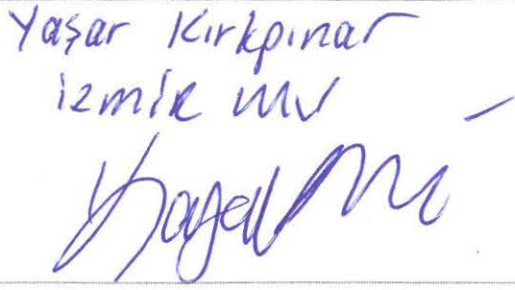 Yaşar Kırkpınar
izmiR MV